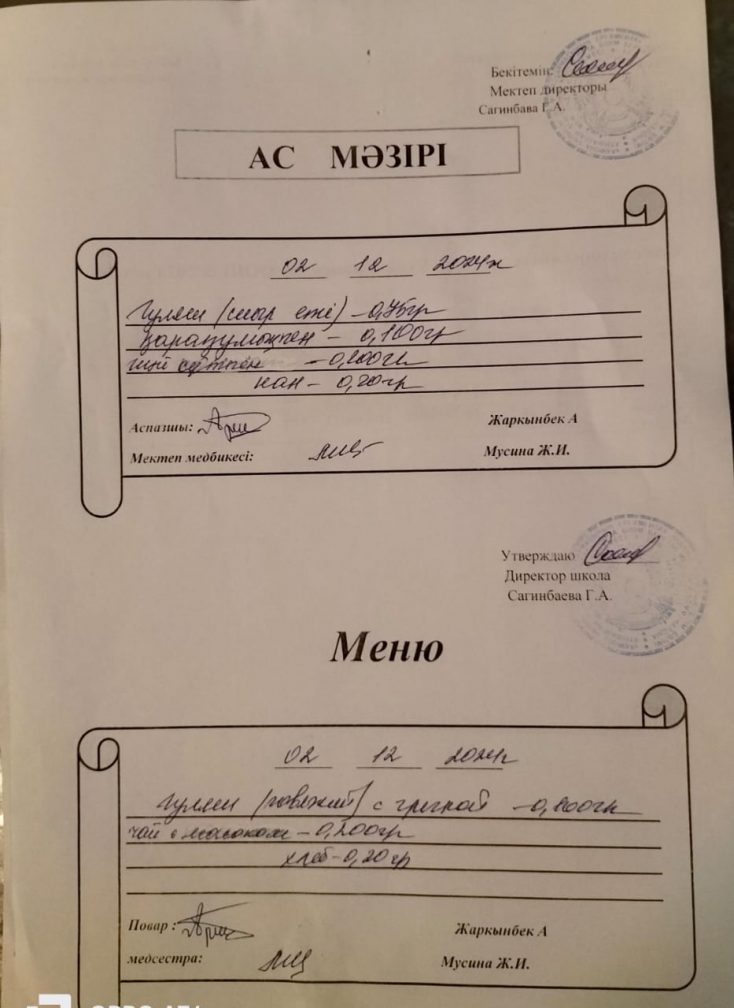 Бекітемін:
Мектеп директоры
Сагинбава Г.А.
АС МӘЗІРІ
02 12 2024ж
Гуляш (сиыр еті) – 0,75гр
қарақұмықпен – 0,100гр
шай сүтпен – 0,200гр
нан – 0,20гр
Аспазшы: Жаркынбек А
Мектеп медбикесі: Мусина Ж.И.
Утверждаю
Директор школа
Сагинбаева Г.А.
Меню
02 12 2024г
Гуляш (говяжий) с гречкой – 0,200гр
чай с молоком – 0,200гр
хлеб – 0,20гр
Повар : Жаркынбек А
медсестра: Мусина Ж.И.